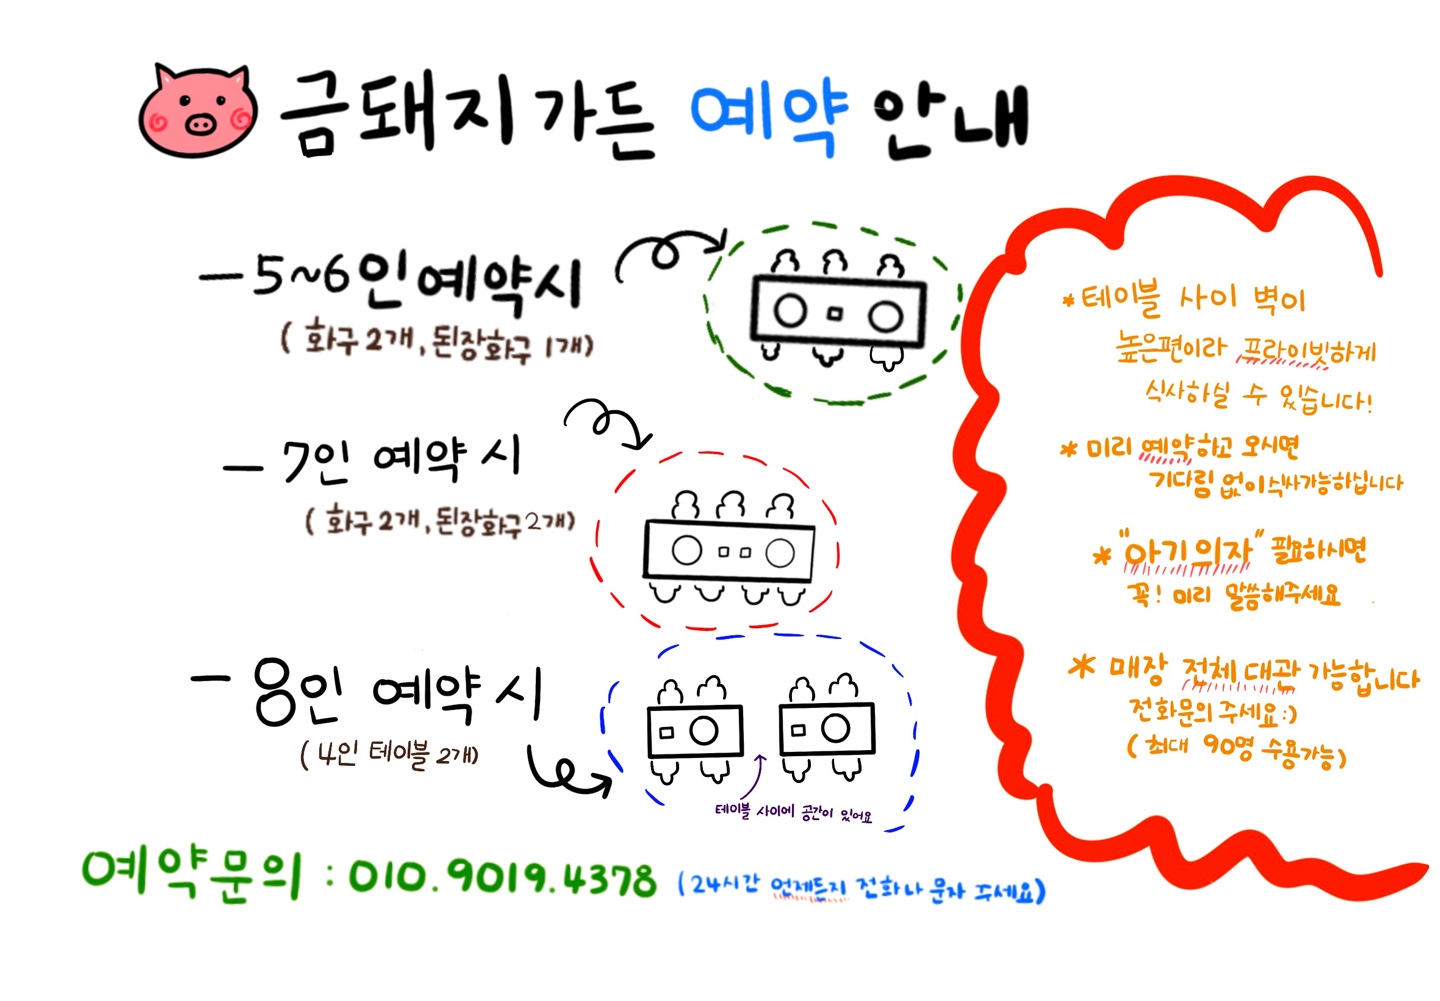 금돼지가든 예약 안내
- 5~6인 예약시
( 화구 2개, 된장화구 1개)
- 7인 예약 시
( 화구 2개, 된장화구 2개)
- 8인 예약 시
( 4인 테이블 2개)
테이블 사이에 공간이 있어요
* 테이블 사이 벽이
높은편이라 프라이빗하게
식사하실 수 있습니다!
* 미리 예약하고 오시면
기다림 없이 식사가능하십니다
* "아기의자" 필요하시면
꼭! 미리 말씀해주세요
* 매장 전체 대관 가능합니다
전화문의 주세요:)
( 최대 90명 수용가능)
예약문의 : 010.9019.4378 (24시간 언제든지 전화나 문자 주세요)